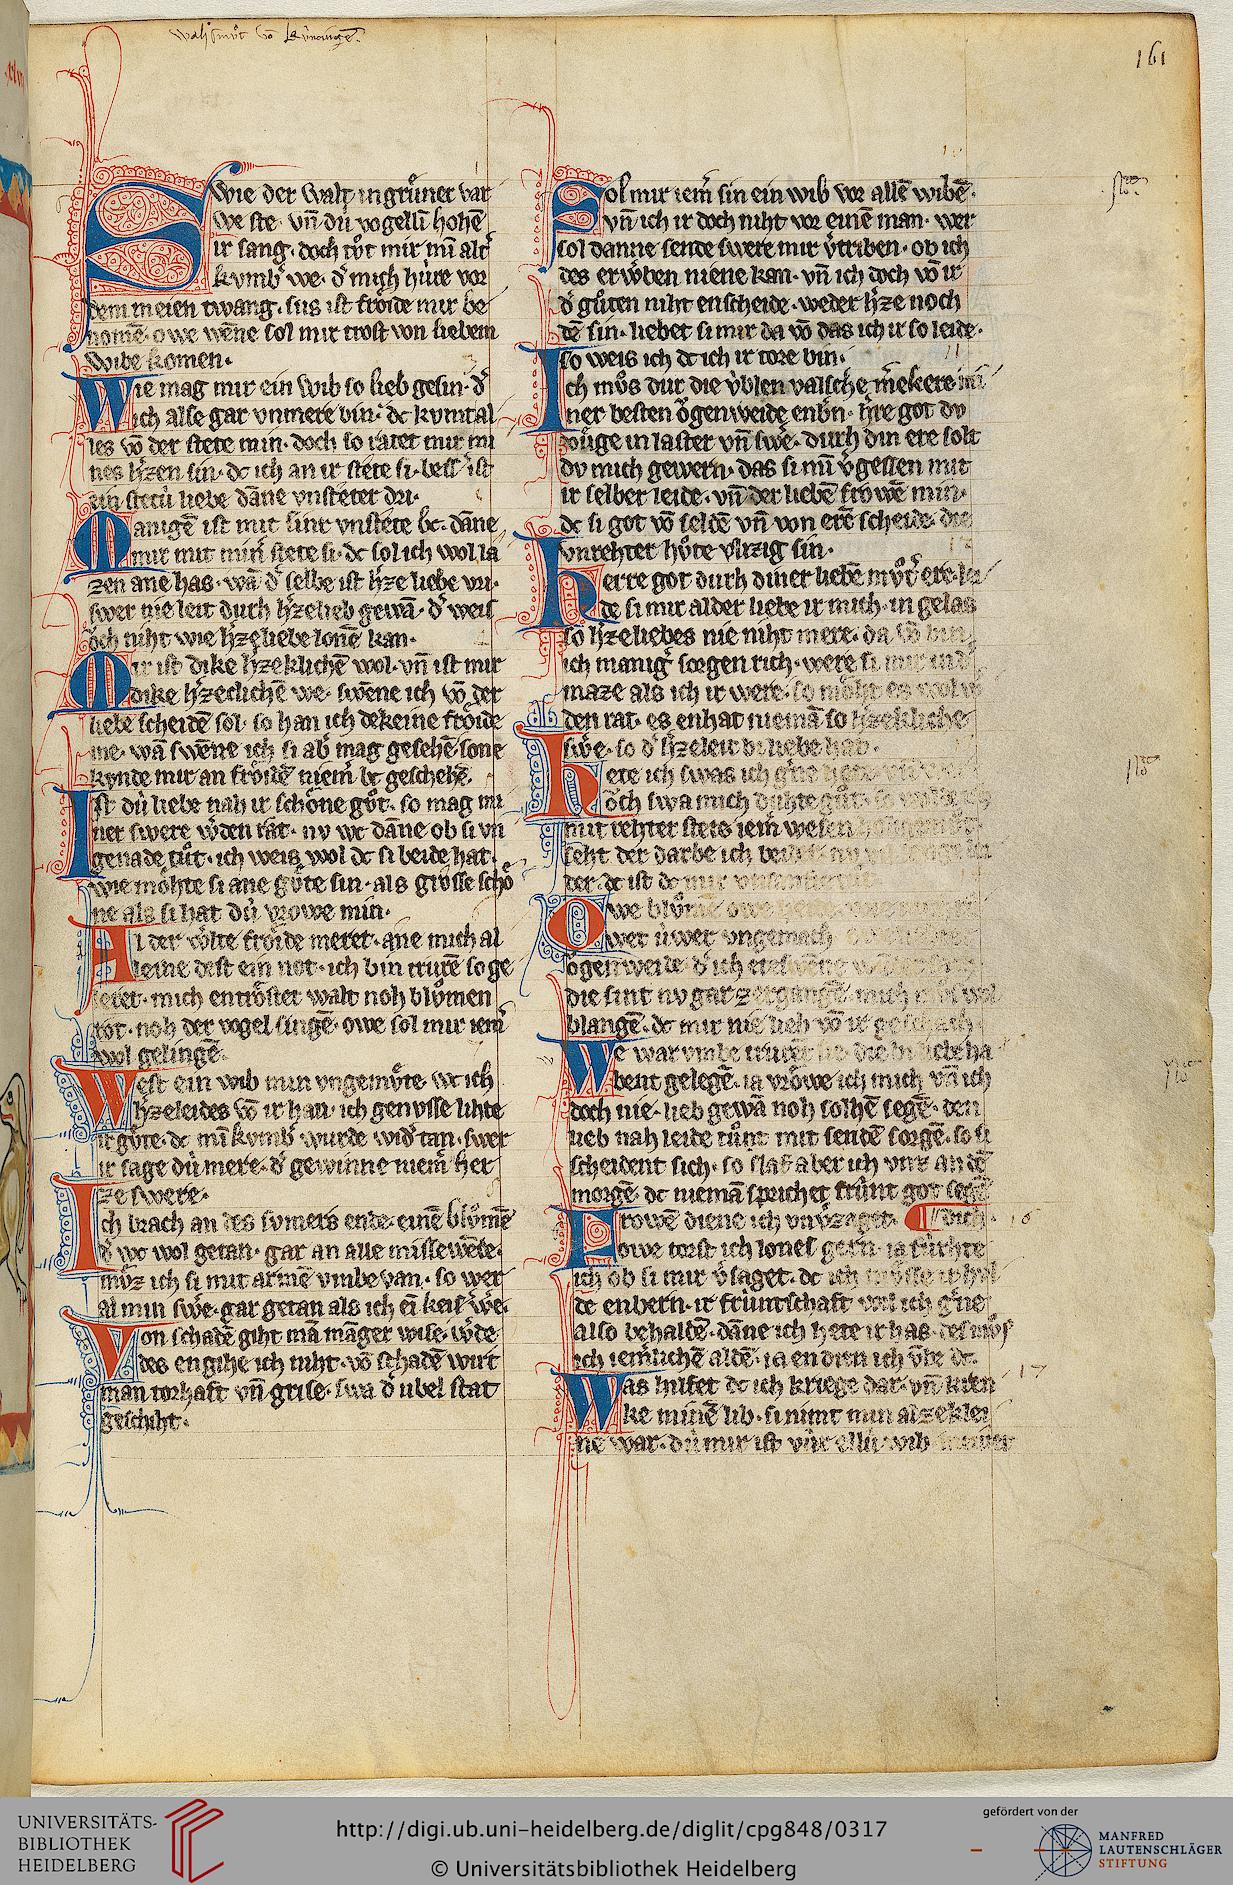 161
Swie der walt in grůner var
we ste· vñ dú vogellı̄ hohē
ir sang· doch tůt mir mı̄ alt͛
kvmb͛ we· d͛ mich húre vor
dem meien twang· sus ist frỏide mir be
nomē· owe wēne sol mir trost von liebem
wibe komen·
Wie mag mir ein wib so lieb gesin· d͛
ich alse gar vnmere bin· dc kvmt al
les vō der stete min· doch so ratet mir mi
nes h͛zen sin· dc ich an ir stete si· bess͛ ist
ein stetú liebe dāne vnsteter dri·
Manigē ist mit siner vnstete bc· dāne
mir mit min͛ stete si· dc sol ich wol la
zen ane has· wā d͛ selbe ist h͛ze liebe vri·
swer nie leit durch h͛zelieb gewā· d͛ weis
ỏch niht wie h͛zeliebe lonē kan·
Mir ist dike h͛zeklichē wol· vñ ist mir
dike h͛zeclichē we· swēne ich vō der
liebe scheidē sol· so han ich dekeine frỏide
me· wā swēne ich si ab͛ mag gesehē· sone
kvnde mir an frỏidē niem͛ bc geschehē·
Ist dú liebe nah ir schỏne gůt· so mag mi
ner swere w͛den rat· nv wc dāne ob si vn
genade tůt· ich weis wol dc si beide hat·
wie mỏhte si ane gůte sin· als grosse schỏ
ne als si hat dú vrowe min·
Al der w͛lte frỏide meret· ane mich al
leine dest ein not· ich bin trurē so ge
leret· mich entrỏstet walt noh blůmen
rot· noh der vogel singē· owe sol mir iem͛
wol gelingē·
West ein wib min vngemůte· wc ich
h͛zeleides vō ir han· ich genvsse lihte
ir gůte· dc mı̄ kvmb͛ wurde wid͛ tan· swer
ir sage dú mere· d͛ gewinne niem͛ her
ze swere·
Ich brach an des svmers ende· einē blůmē
d͛ wc wol getan· gar an alle missewēde·
můz ich si mit armē vmbevan· so wer
al min sw͛e· gar getan als ich ein keis͛ w͛e·
Von schadē giht mā māger wise· w͛de·
des engihe ich niht· vō schadē wirt
man torhaft vñ grise· swa d͛ ubel stat
geschiht·
Sol mir iem͛ sin ein wib vor allē wibē·
vñ ich ir doch niht vor einē man· wer
sol danne sende swere mir v͛triben· ob ich
des erw͛ben niene kan· vñ ich doch vō ir
d͛ gůten niht enscheide· weder h͛ze noch
dē sin· liebet si mir da vō das ich ir so leide·
so weis ich dc ich ir tore bin·
Ich můs dur die v́blen valschē m͛kere mi
ner besten ỏgenweide enb͛n· h͛re got dv
zỏuge in laster vñ sw͛e· durh din ere solt
dv mich gewern· das si mı̄ v͛gessen mit
ir selber leide· vñ der liebē frowē min·
dc si got vō seldē vñ von erē scheide· die
vnrehter hůte vlizig sin·
Herre got durh diner liebē můt͛ ere· lei
de si mir alder liebe ir mich· in gelas
so h͛zeliebes nie niht mere· da vō bin
ich manig͛ sorgen rich· were si mir in d͛
maze als ich ir were· so mỏht es wol w͛
den rat· es enhat niemā so h͛zekliche
sw͛e· so d͛ h͛zeleit bi liebe hat·
Hete ich swas ich g͛ne hete·
ỏch swa mich duhte gůt· so
mit rehter stete iem͛ wesen
seht der darbe ich beider·
der· dc ist dc mir
Owe blůmē owe heide·
ower úwer vngemach
ỏgenweide· d͛ ich eteswēne
die sint nv gar zergangē· mich můs wol
blangē· dc mir nie lieb vō ir geschach·
We war vmbe trurēt sie· die bi liebe ha
bent gelegē· ia vrỏwe ich mich vñ ich
doch nie· lieb gewā noh solhē segē· den
lieb nah leide tůnt· mit sendē sorgē· so si
scheident sich· so slaf aber ich vnz an dē
morgē· dc niemā sprichet frúnt got segē
Frowē diene ich vnv͛zaget· dich·
owe torst ich lones gern· ia fúrhte
ich ob si mir v͛saget· dc ich mv́sse ir hul
de enbern· ir frúntschaft wil ich g͛ne
also behaldē· dāne ich hete ir has· des můs
ich iem͛lichē aldē· ia en dien ich v͛be dc·
Was hilfet dc ich kriege dar· vñ kren
ke minē lib· si nimt min al ze klei
ne war· dú mir ist vúr ellú wib
16
17
UNIVERSITÄTS-
BIBLIOTHEK
HEIDELBERG
http://digi.ub.uni-heidelberg.de/diglit/cpg848/0317
© Universitätsbibliothek Heidelberg
gefördert von der
MANFRED
LAUTENSCHLÄGER
STIFTUNG